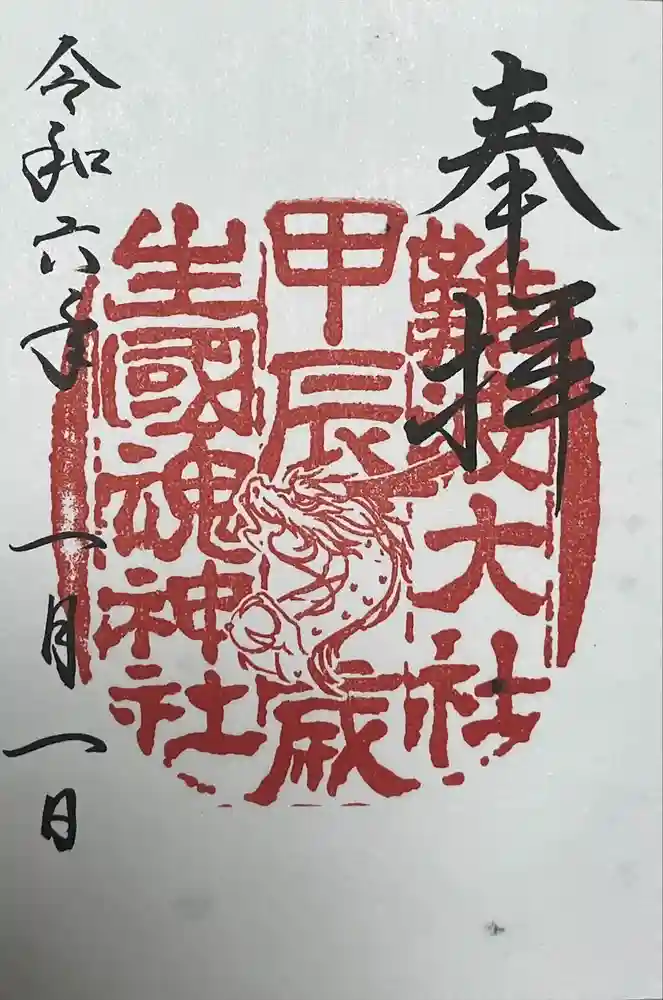 奉拝
難波大社
甲辰歳
生國魂神社
令和六年 一月 一日